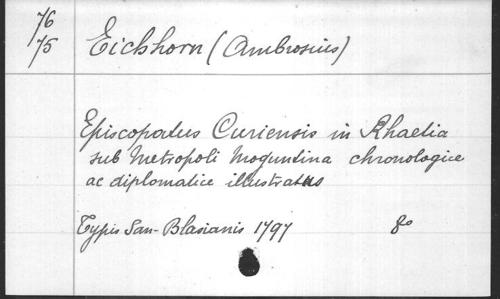 76
75
Eichhorn (Ambrosius)
Episcopatus Curiensis in Rhaetia
sub Metropoli Moguntina chronologice
ac diplomatice illustratus
Typis San-Blasianis 1797 8o